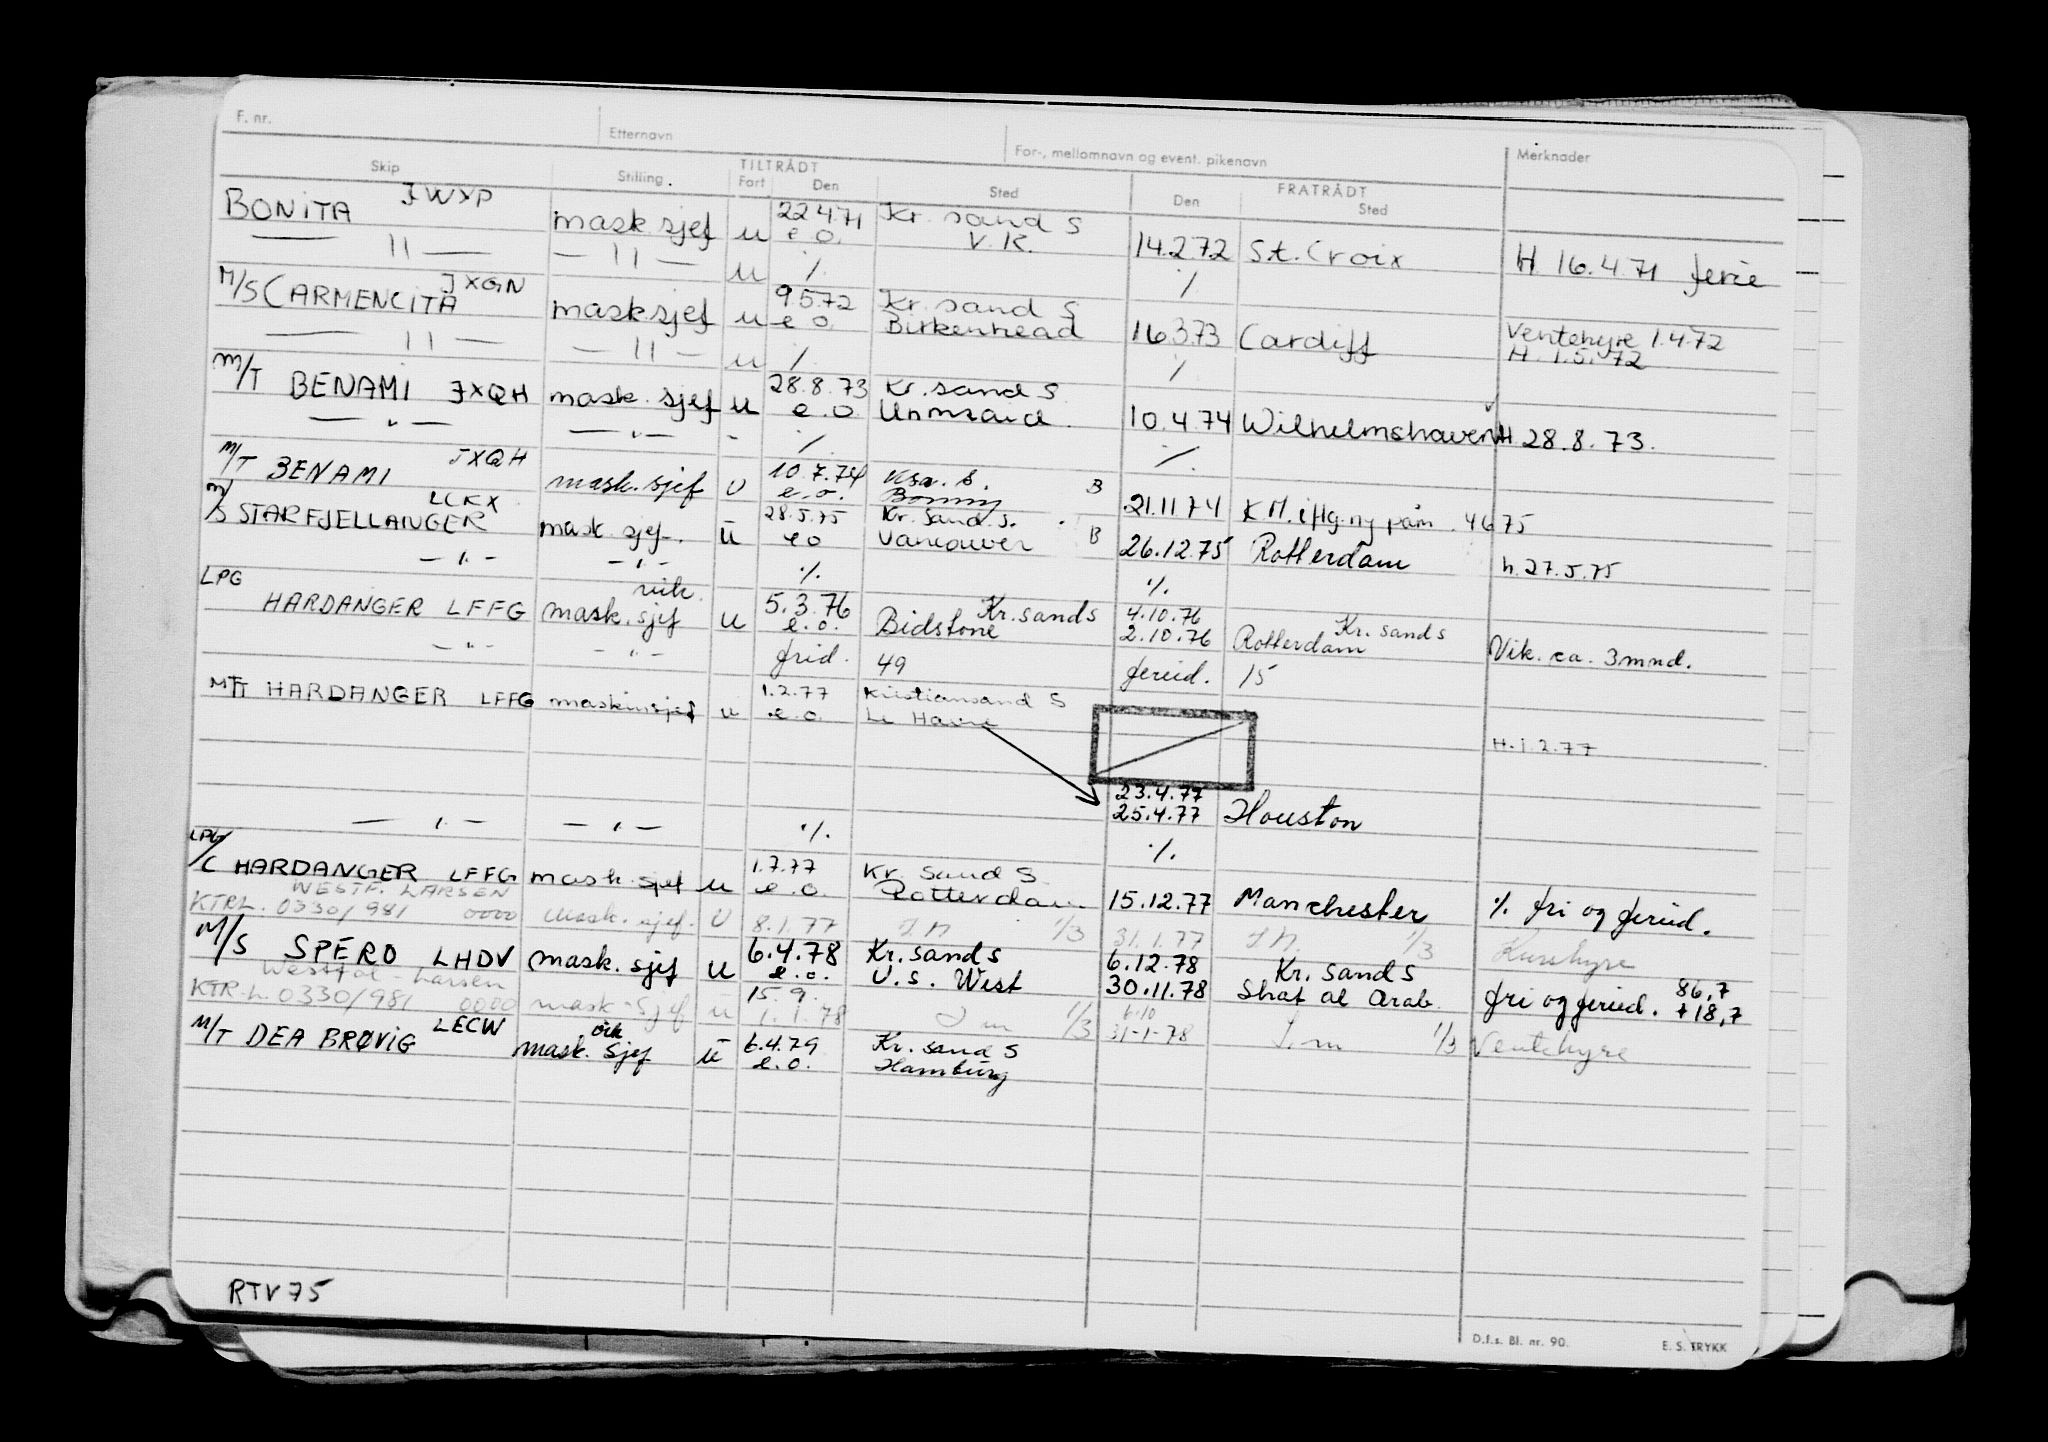 F. nr. Etternavn For-, mellomnavn og event. pikenavn Merknader
Skip Stilling TILTRÅDT Fart Den Sted Den FRATRÅDT Sted
BONITA JWXP mask sjef u 22.4.71 Kr. sand S
e o. V. K. 14.2.72 St. Croix H 16.4.71 ferie
— 11 — — 11 — u % %
M/S CARMENCITA JXGN mask sjef u 9.5.72 Kr. sand S
e o. Birkenhead 16.3.73 Cardiff Ventehyre 1.4.72
H. 1.5.72
— 11 — — 11 — u % %
M/T BENAMI JXQH mask. sjef u 28.8.73 Kr. sand S
e.o. 10.4.74 Wilhelmshaven H 28.8.73.
— " — — " — - % %
M/T BENAMI JXQH mask. sjef U 10.7.74 B
e.o. Bonny 21.11.74 4675
M/S STARFJELLANGER LCKX mask. sjef. ū 28.5.75 Kr. Sand S.
e o Vancouver B 26.12.75 Rotterdam h. 27.5.75
— " — — " — % %
LPG HARDANGER LFFG vik. mask. sjef u 5.3.76 Kr. sand S 4.10.76 Kr. sand S
e.o. Bidstone 2.10.76 Rotterdam Vik. ca. 3 mnd.
— " — — " — frid. 49 feried. 15
M/T HARDANGER LFFG maskinsjef u 1.2.77 Kristiansand S
e.o. Le Havre
H. 1.2.77
23.4.77
25.4.77 Houston
— " — — " — % %
LPG/C HARDANGER LFFG mask. sjef u 1.7.77 Kr. Sand S.
e.o. Rotterdam 15.12.77 Manchester % fri og feried.
WESTF. LARSEN
KTRL. 0330/981 0000 mask. sjef. U 8.1.77 1/3 31.1.77 1/3
M/S SPERO LHDV mask. sjef u 6.4.78 Kr. sand S 6.12.78 Kr. sand S
e.o. U.S. West 30.11.78 Shat al Arab. fri og feried. 86,7
+ 18,7
Westfal-Larsen
KTR.L. 0330/981 0000 mask. sjef u 15.9. 6.10
1.1.78 1/3 31-1-78 1/3 Ventehyre
M/T DEA BRØVIG LECW mask. sjef ū 6.4.79 Kr. sand S
e.o. Hamburg
RTV 75
D.f.s. Bl. nr. 90. E. S. TRYKK